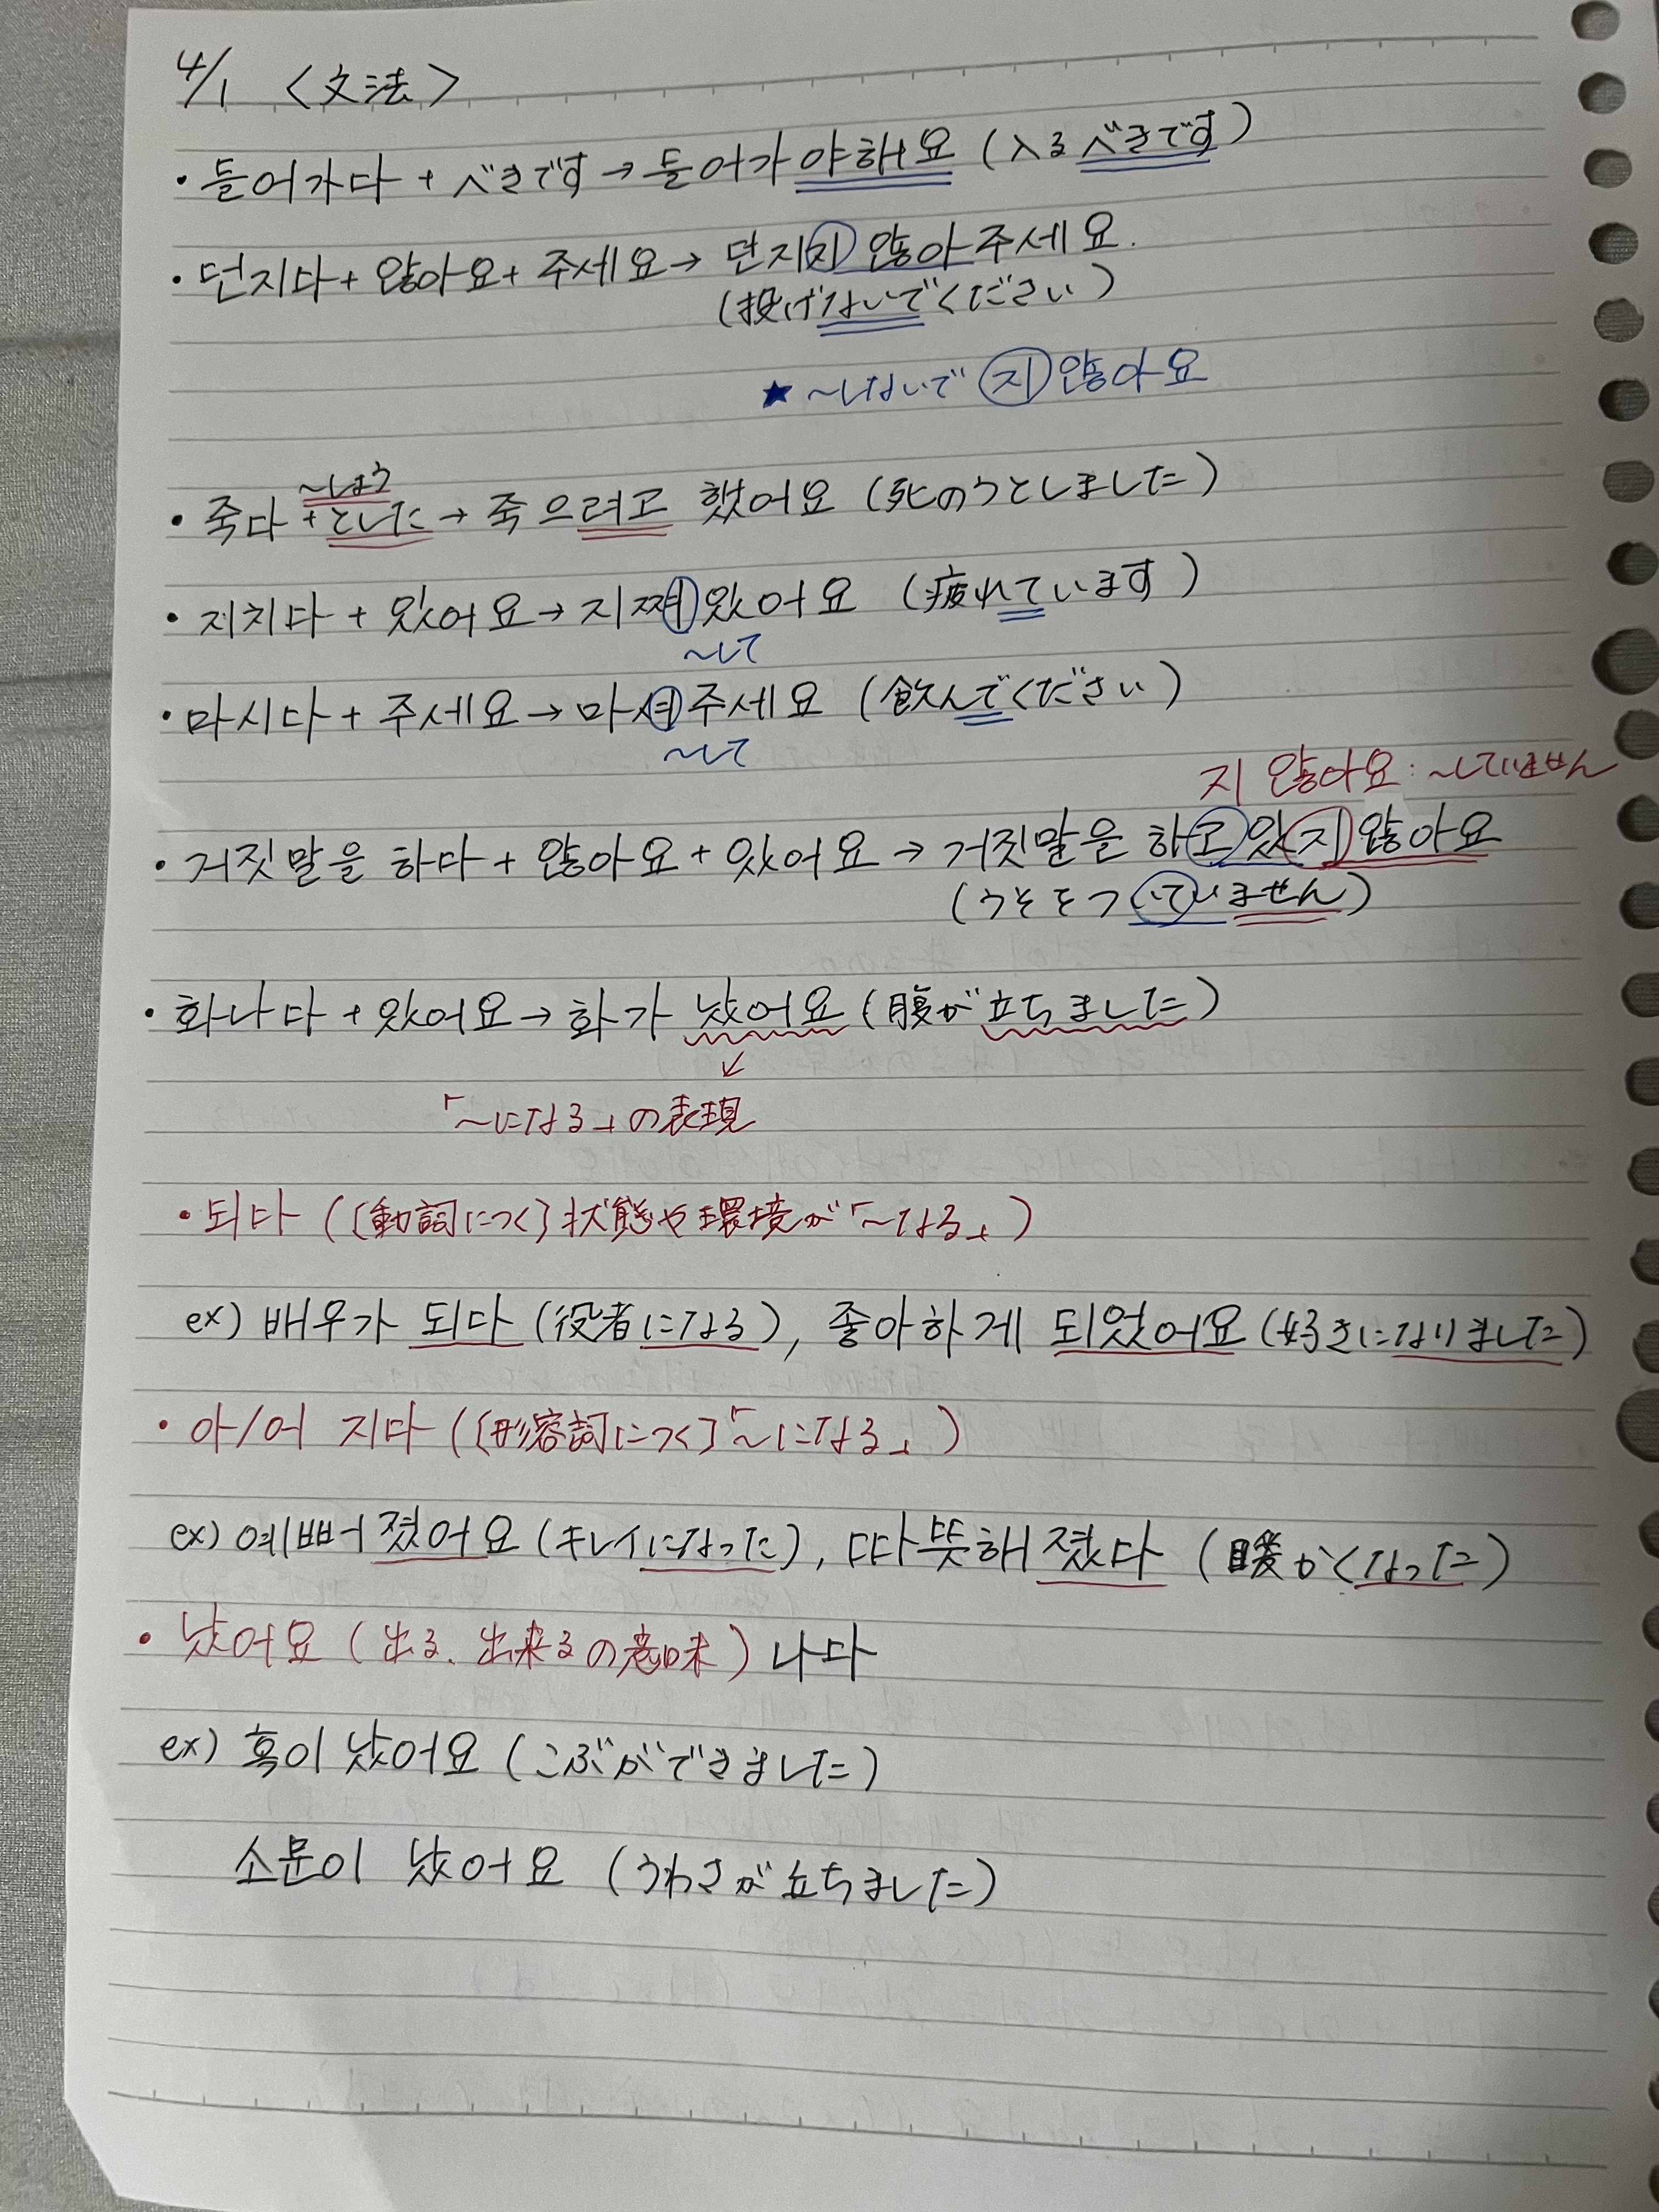 4/1 〈文法〉
・들어가다 + べきです → 들어가야 해요 (入るべきです)
・던지다 + 않아요 + 주세요 → 던지지 않아 주세요.
(投げないでください)
★ ~しないで 지 않아요
~しよう
・죽다 + とした → 죽으려고 했어요 (死のうとしました)
・지치다 + 있어요 → 지쳐 있어요 (疲れています)
~して
・마시다 + 주세요 → 마셔 주세요 (飲んでください)
~して
지 않아요 : ~していません
・거짓말을 하다 + 않아요 + 있어요 → 거짓말을 하고 있지 않아요
(うそをついていません)
・화나다 + 있어요 → 화가 났어요 (腹が立ちました)
↙
「~になる」の表現
・되다 (〔動詞につく〕状態や環境が「~なる」)
ex) 배우가 되다 (役者になる), 좋아하게 되었어요 (好きになりました)
・아/어 지다 (〔形容詞につく〕「~になる」)
ex) 예뻐졌어요 (キレイになった), 따뜻해졌다 (暖かくなった)
・났어요 (出る、出来るの意味) 나다
ex) 혹이 났어요 (こぶができました)
소문이 났어요 (うわさが立ちました)